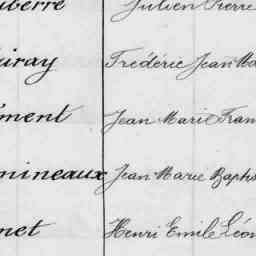 Julien Pierre
Frédéric Jean Ma
ément Jean Marie Fran
mineaux Jean Marie Baptis
net Henri Emile Léon